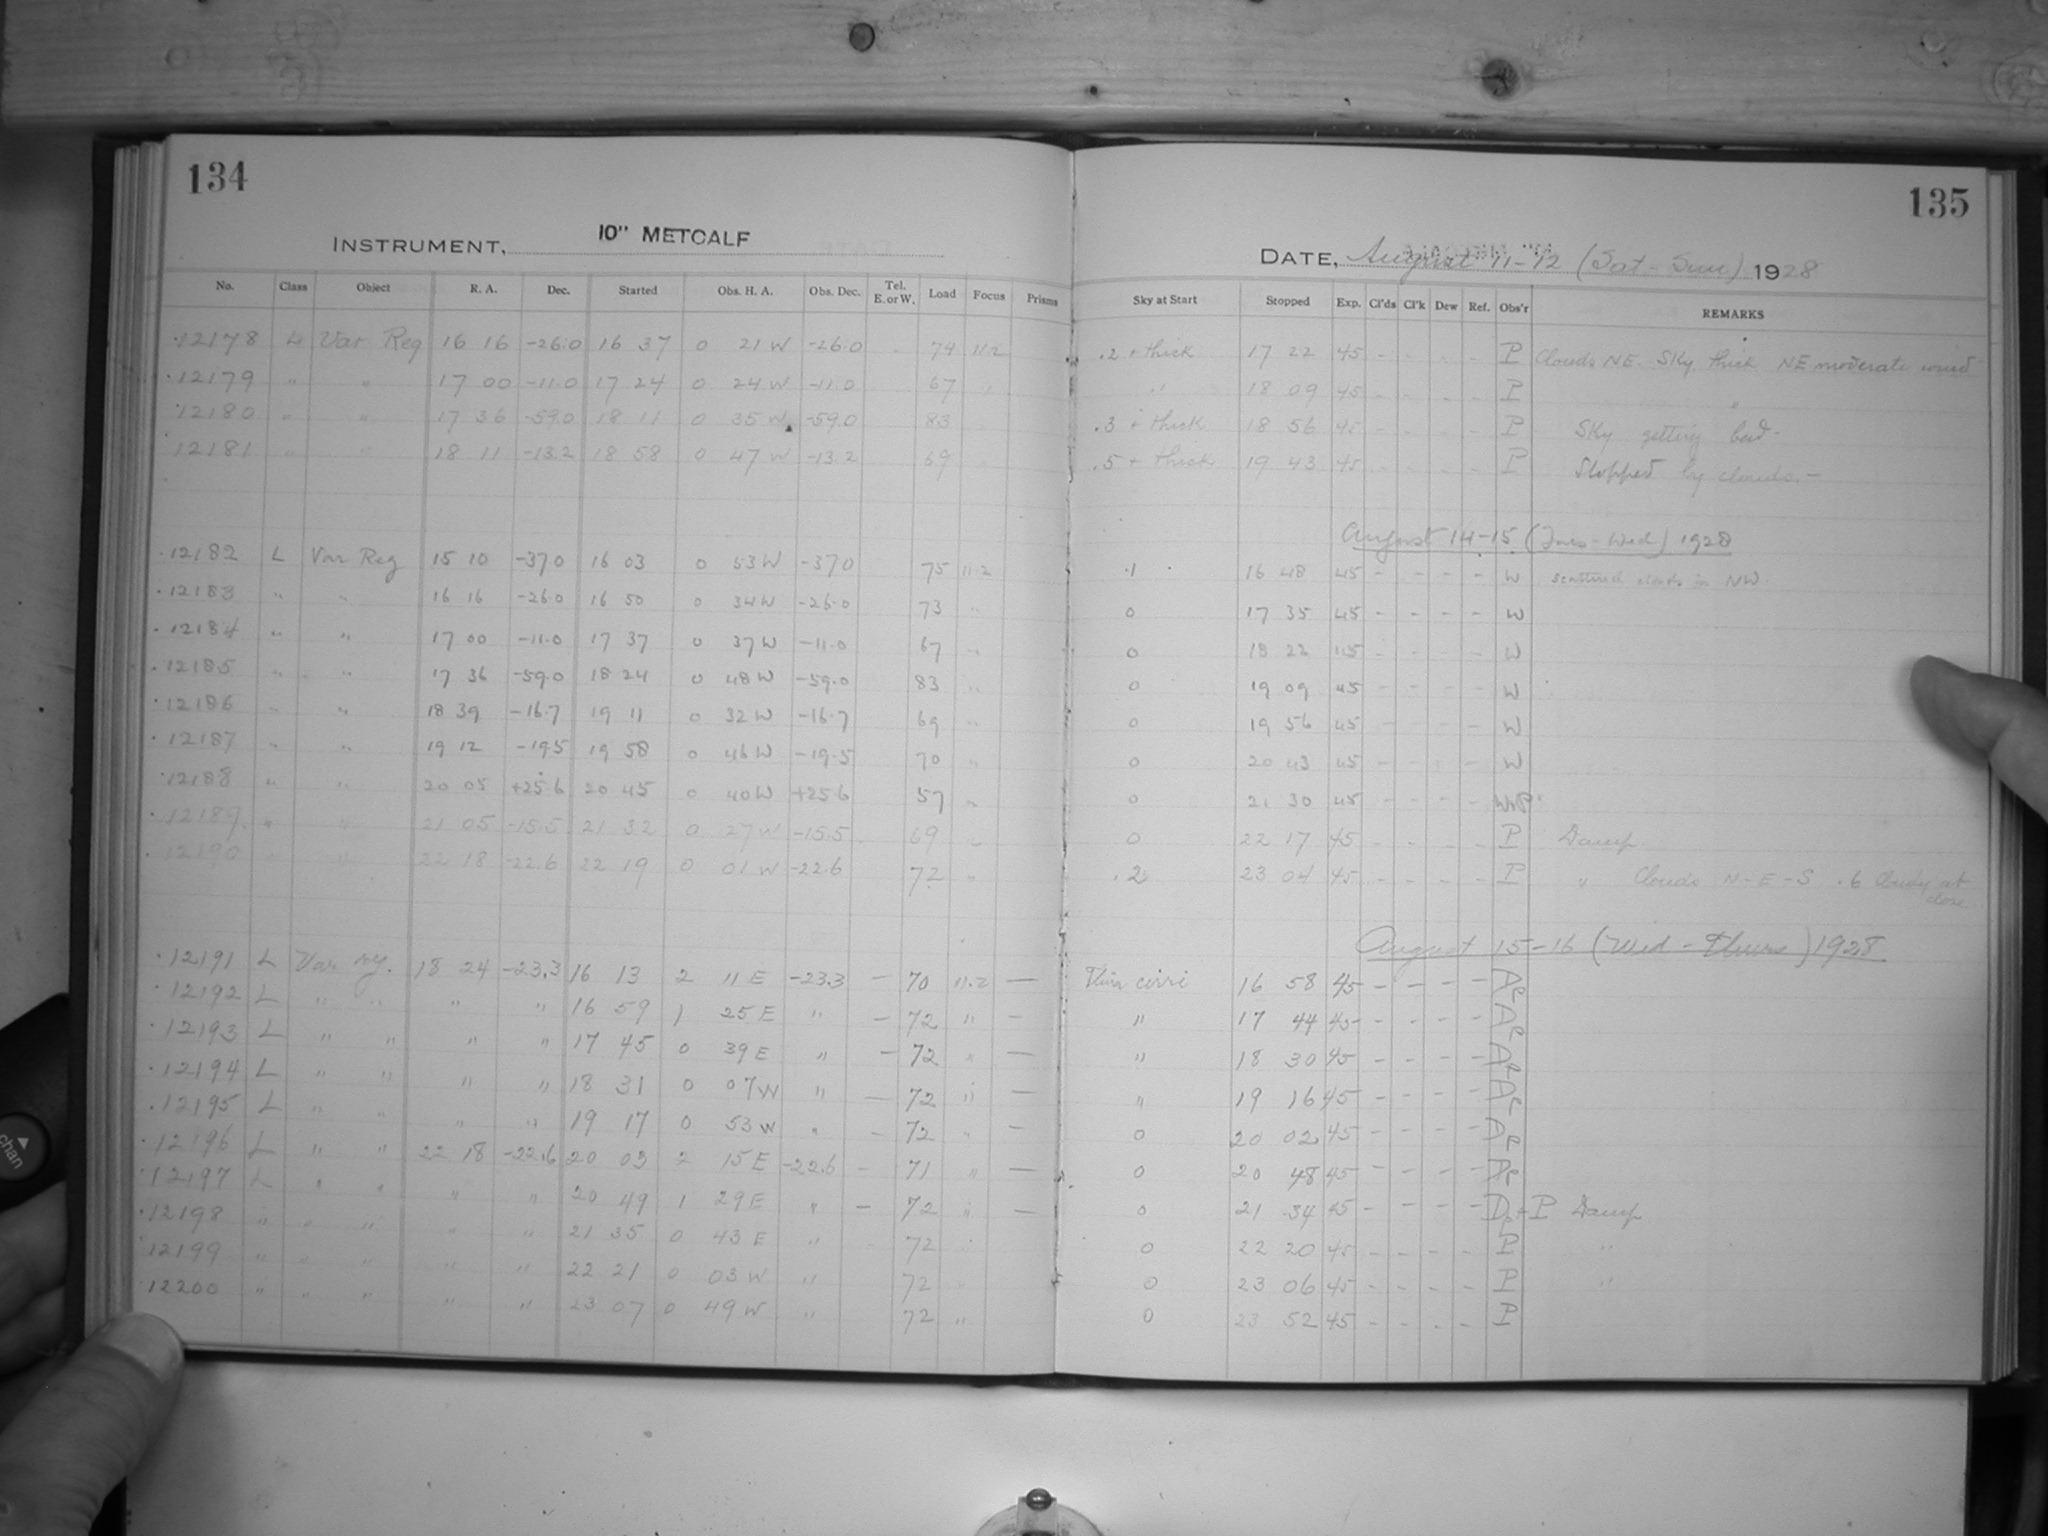 134
INSTRUMENT, 10" METCALF
No. Class Object R. A. Dec. Started Obs. H. A. Obs. Dec. Tel. E. or W. Load Focus Prisms
12178 L Var Reg 16 16 -26.0 16 37 0 21 W -26.0 74 11.2
12179 " " 17 00 -11.0 17 24 0 24 W -11.0 67 "
12180 " " 17 36 -59.0 18 11 0 35 W -59.0 83
12181 " " 18 11 -13.2 18 58 0 47 W -13.2 69
12182 L Var Reg 15 10 -37.0 16 03 0 53 W -37.0 75 11.2
12183 " " 16 16 -26.0 16 50 0 34 W -26.0 73 "
12184 " " 17 00 -11.0 17 37 0 37 W -11.0 67 "
12185 " " 17 36 -59.0 18 24 0 48 W -59.0 83 "
12186 " " 18 39 -16.7 19 11 0 32 W -16.7 69 "
12187 " " 19 12 -19.5 19 58 0 46 W -19.5 70 "
12188 " " 20 05 +25.6 20 45 0 40 W +25.6 57 "
12189 " " 21 05 -15.5 21 32 0 27 W -15.5 69 "
12190 " " 22 18 -22.6 22 19 0 01 W -22.6 72 "
12191 L Var reg. 18 24 -23.3 16 13 2 11 E -23.3 — 70 11.2 —
12192 L " " " " 16 59 1 25 E " — 72 " —
12193 L " " " " 17 45 0 39 E " — 72 " —
12194 L " " " " 18 31 0 07 W " — 72 " —
12195 L " " " " 19 17 0 53 W " — 72 " —
12196 L " " 22 18 -22.6 20 03 2 15 E -22.6 — 71 " —
12197 L " " " " 20 49 1 29 E " — 72 " —
12198 " " " " " 21 35 0 43 E " 72 "
12199 " " " " " 22 21 0 03 W " 72 "
12200 " " " " " 23 07 0 49 W " 72 "
135
DATE, August 11-12 (Sat - Sun) 1928
Sky at Start Stopped Exp. Cl'ds Cl'k Dew Ref. Obs'r REMARKS
.2 + thick 17 22 45 - - - - P Clouds NE. Sky thick NE moderate wind
" 18 09 45 - - - - P "
.3 + thick 18 56 45 - - - - P Sky getting bad -
.5 + thick 19 43 45 - - - - P Stopped by clouds. -
August 14-15 (Tues - Wed) 1928
.1 16 48 45 - - - - W scattered clouds in NW.
0 17 35 45 - - - - W
0 18 22 45 - - - - W
0 19 09 45 - - - - W
0 19 56 45 - - - - W
0 20 43 45 - - - - W
0 21 30 45 - - - -
0 22 17 45 - - - - P Damp.
.2 23 04 45 - - - - P " Clouds N-E-S .6 Cloudy at
close
August 15-16 (Wed - Thurs) 1928
Thin cirri 16 58 45 - - - -
" 17 44 45 - - - -
" 18 30 45 - - - -
" 19 16 45 - - - -
0 20 02 45 - - - -
0 20 48 45 - - - -
0 21 34 45 - - - - P Damp
0 22 20 45 - - - - P "
0 23 06 45 - - - - P "
0 23 52 45 - - - - P
chan